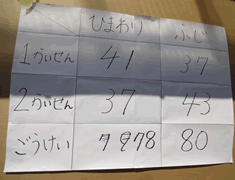 ひまわり ふじ
1かいせん 41 37
2かいせん 37 43
ごうけい 78 80